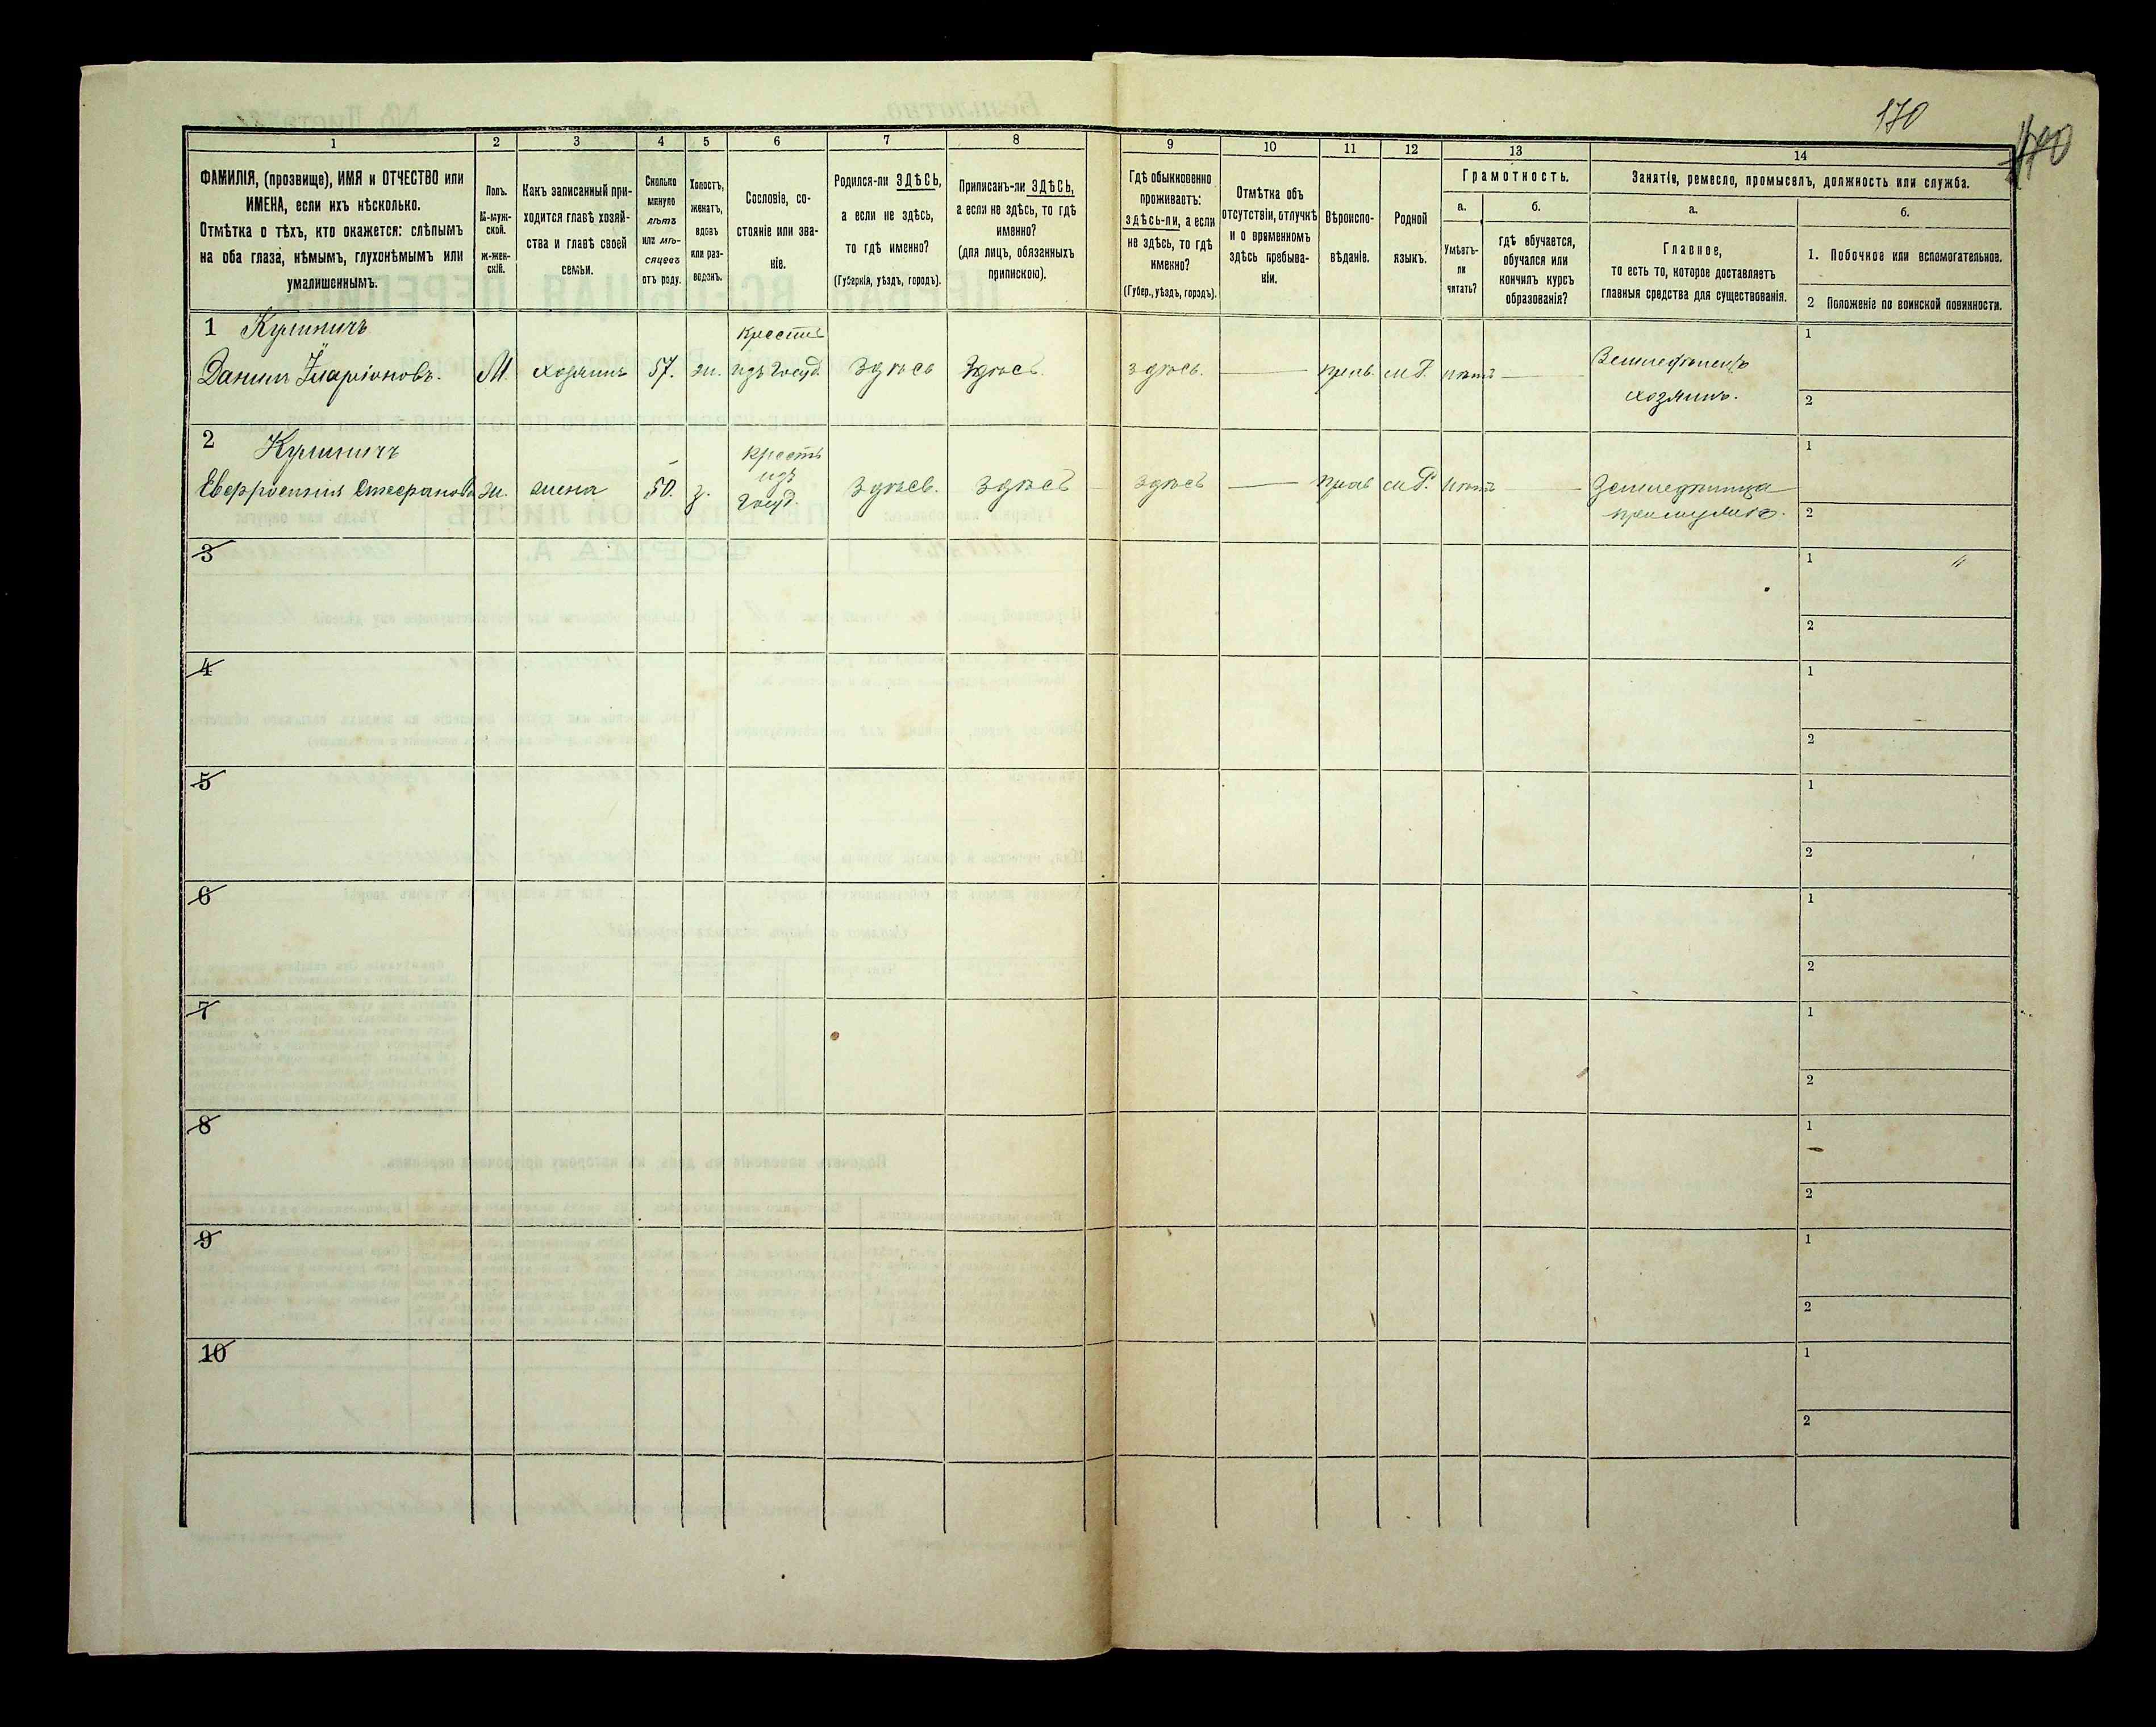 170
170
1
2
3
4
5
6
7
8
9
10
11
12
13
14
ФАМИЛІЯ, (прозвище), ИМЯ и ОТЧЕСТВО или
ИМЕНА, если ихъ нѣсколько.
Отмѣтка о тѣхъ, кто окажется: слѣпымъ
на оба глаза, нѣмымъ, глухонѣмымъ или
умалишеннымъ.
Полъ.
М-муж-
ской.
Ж-жен-
скій.
Какъ записанный при-
ходится главѣ хозяй-
ства и главѣ своей
семьи.
Сколько
минуло
лѣтъ
или мѣ-
сяцевъ
отъ роду.
Холостъ,
женатъ,
вдовъ
или раз-
веденъ.
Сословіе, со-
стояніе или зва-
ніе.
Родился-ли ЗДѢСЬ,
а если не здѣсь,
то гдѣ именно?
(Губернія, уѣздъ, городъ).
Приписанъ-ли ЗДѢСЬ,
а если не здѣсь, то гдѣ
именно?
(для лицъ, обязанныхъ
припискою).
Гдѣ обыкновенно
проживаетъ:
здѣсь-ли, а если
не здѣсь, то гдѣ
именно?
(Губер., уѣздъ, городъ).
Отмѣтка объ
отсутствіи, отлучкѣ
и о временномъ
здѣсь пребыва-
ніи.
Вѣроиспо-
вѣданіе.
Родной
языкъ.
Грамотность.
а.
Умѣетъ-
ли
читать?
б.
гдѣ обучается,
обучался или
кончилъ курсъ
образованія?
Занятіе, ремесло, промыселъ, должность или служба.
а.
Главное,
то есть то, которое доставляетъ
главныя средства для существованія.
б.
1. Побочное или вспомогательное.
2 Положеніе по воинской повинности.
1 Кулиничъ
Данилъ Иларіоновъ.
М.
хозяинъ
57.
ж.
крестъ
изъ Госуд.
Здѣсь
Здѣсь.
здѣсь.
прав.
м.Р.
нѣтъ
Земледѣлецъ
хозяинъ.
1
2
2 Кулиничъ
Евфросинія Стефанова
ж.
жена
50.
з.
крестъ
изъ
Госуд.
Здѣсь.
Здѣсь
здѣсь
прав
м.Р.
нѣтъ
Земледѣлица
1
2
3
1
2
4
1
2
5
1
2
6
1
2
7
1
2
8
1
2
9
1
2
10
1
2